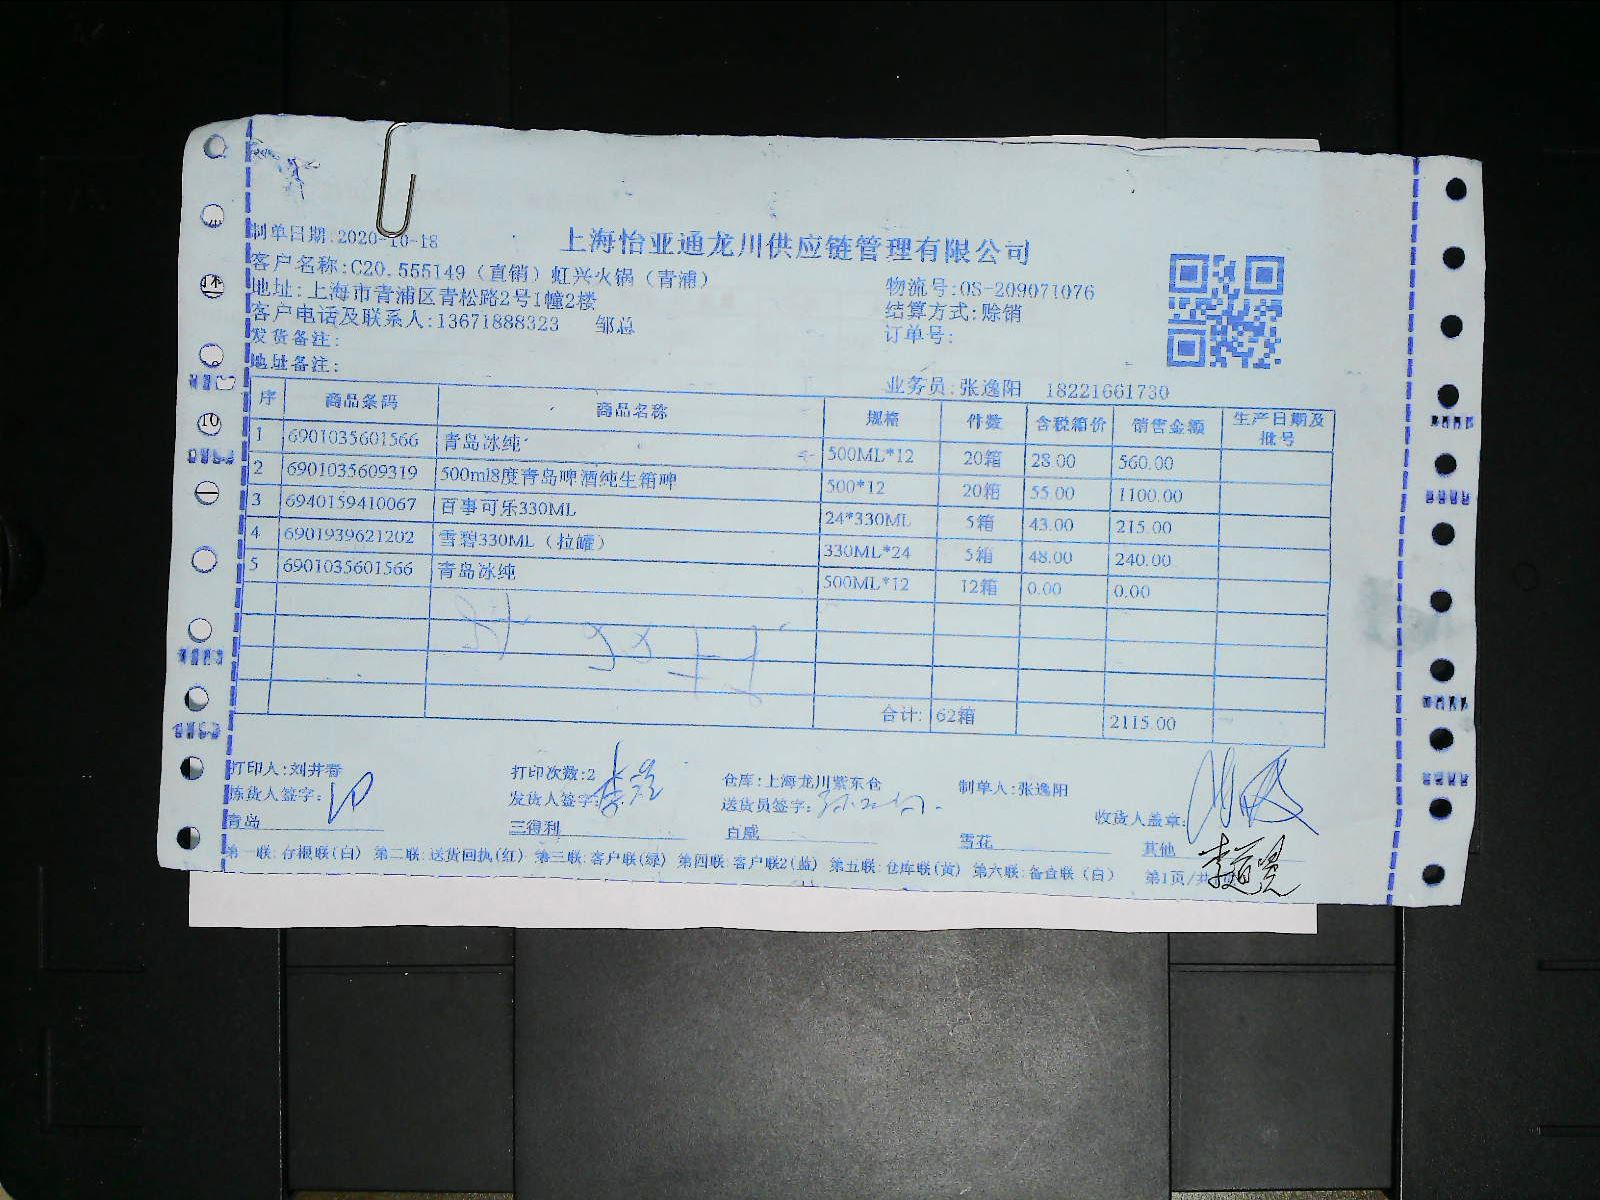 制单日期:2020-10-18
上海怡亚通龙川供应链管理有限公司
客户名称:C20.555149（直销）虹兴火锅（青浦）
物流号:OS-209071076
地址:上海市青浦区青松路2号1幢2楼
结算方式:赊销
客户电话及联系人:13671888323 邹总
订单号:
发货备注:
地址备注:
业务员:张逸阳 18221661730
序 商品条码 商品名称 规格 件数 含税箱价 销售金额 生产日期及批号
1 6901035601566 青岛冰纯 500ML*12 20箱 28.00 560.00
2 6901035609319 500ml8度青岛啤酒纯生箱啤 500*12 20箱 55.00 1100.00
3 6940159410067 百事可乐330ML 24*330ML 5箱 43.00 215.00
4 6901939621202 雪碧330ML（拉罐） 330ML*24 5箱 48.00 240.00
5 6901035601566 青岛冰纯 500ML*12 12箱 0.00 0.00
合计: 62箱 2115.00
打印人:刘井春 打印次数:2 仓库:上海龙川紫东仓 制单人:张逸阳
拣货人签字: 发货人签字: 送货员签字: 收货人盖章:
青岛 三得利 百威 雪花 其他
第一联:存根联(白) 第二联:送货回执(红) 第三联:客户联(绿) 第四联:客户联2(蓝) 第五联:仓库联(黄) 第六联:备查联（白） 第1页/共